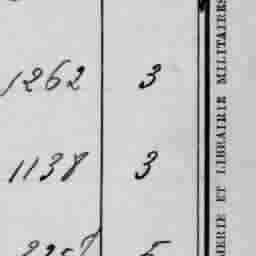 1262 3
1138 3
ERIE ET LIBRAIRIE MILITAIRES